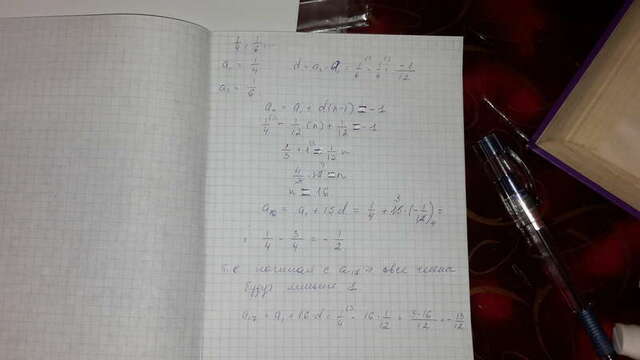 1/4; 1/6 ...
a₁ = 1/4     d = a₂ - a₁ = 1/6 - 1/4 = -1/12
a₂ = 1/6
aₙ = a₁ + d(n-1) = -1
1/4 - 1/12 (n) + 1/12 = -1
1/3 + 1 = 1/12 n
n = 16
= a₁ + 15d = 1/4 + 15 · (-1/12) =
= 1/4 - = - 1/2
начиная с все члены
будут меньше 1
a₁₇ = a₁ + 16 · d = 1/4 - 16 · 1/12 = 3-16/12 = - 13/12